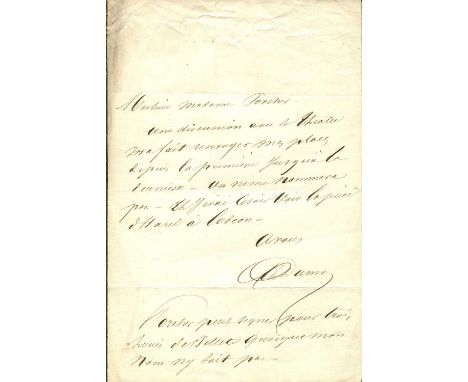 Ma chère madame Porcher
une discussion avec le théatre
m'a fait renvoyer mes places
depuis la première jusqu'a la
dernière - on ne me nommera
pas - et j'irai voir la pièce
d'Harel à l'odeon -
A vous
ADumas
Porcher peut signer pour trois
louis de Billets quoique mon
nom n'y soit pas -